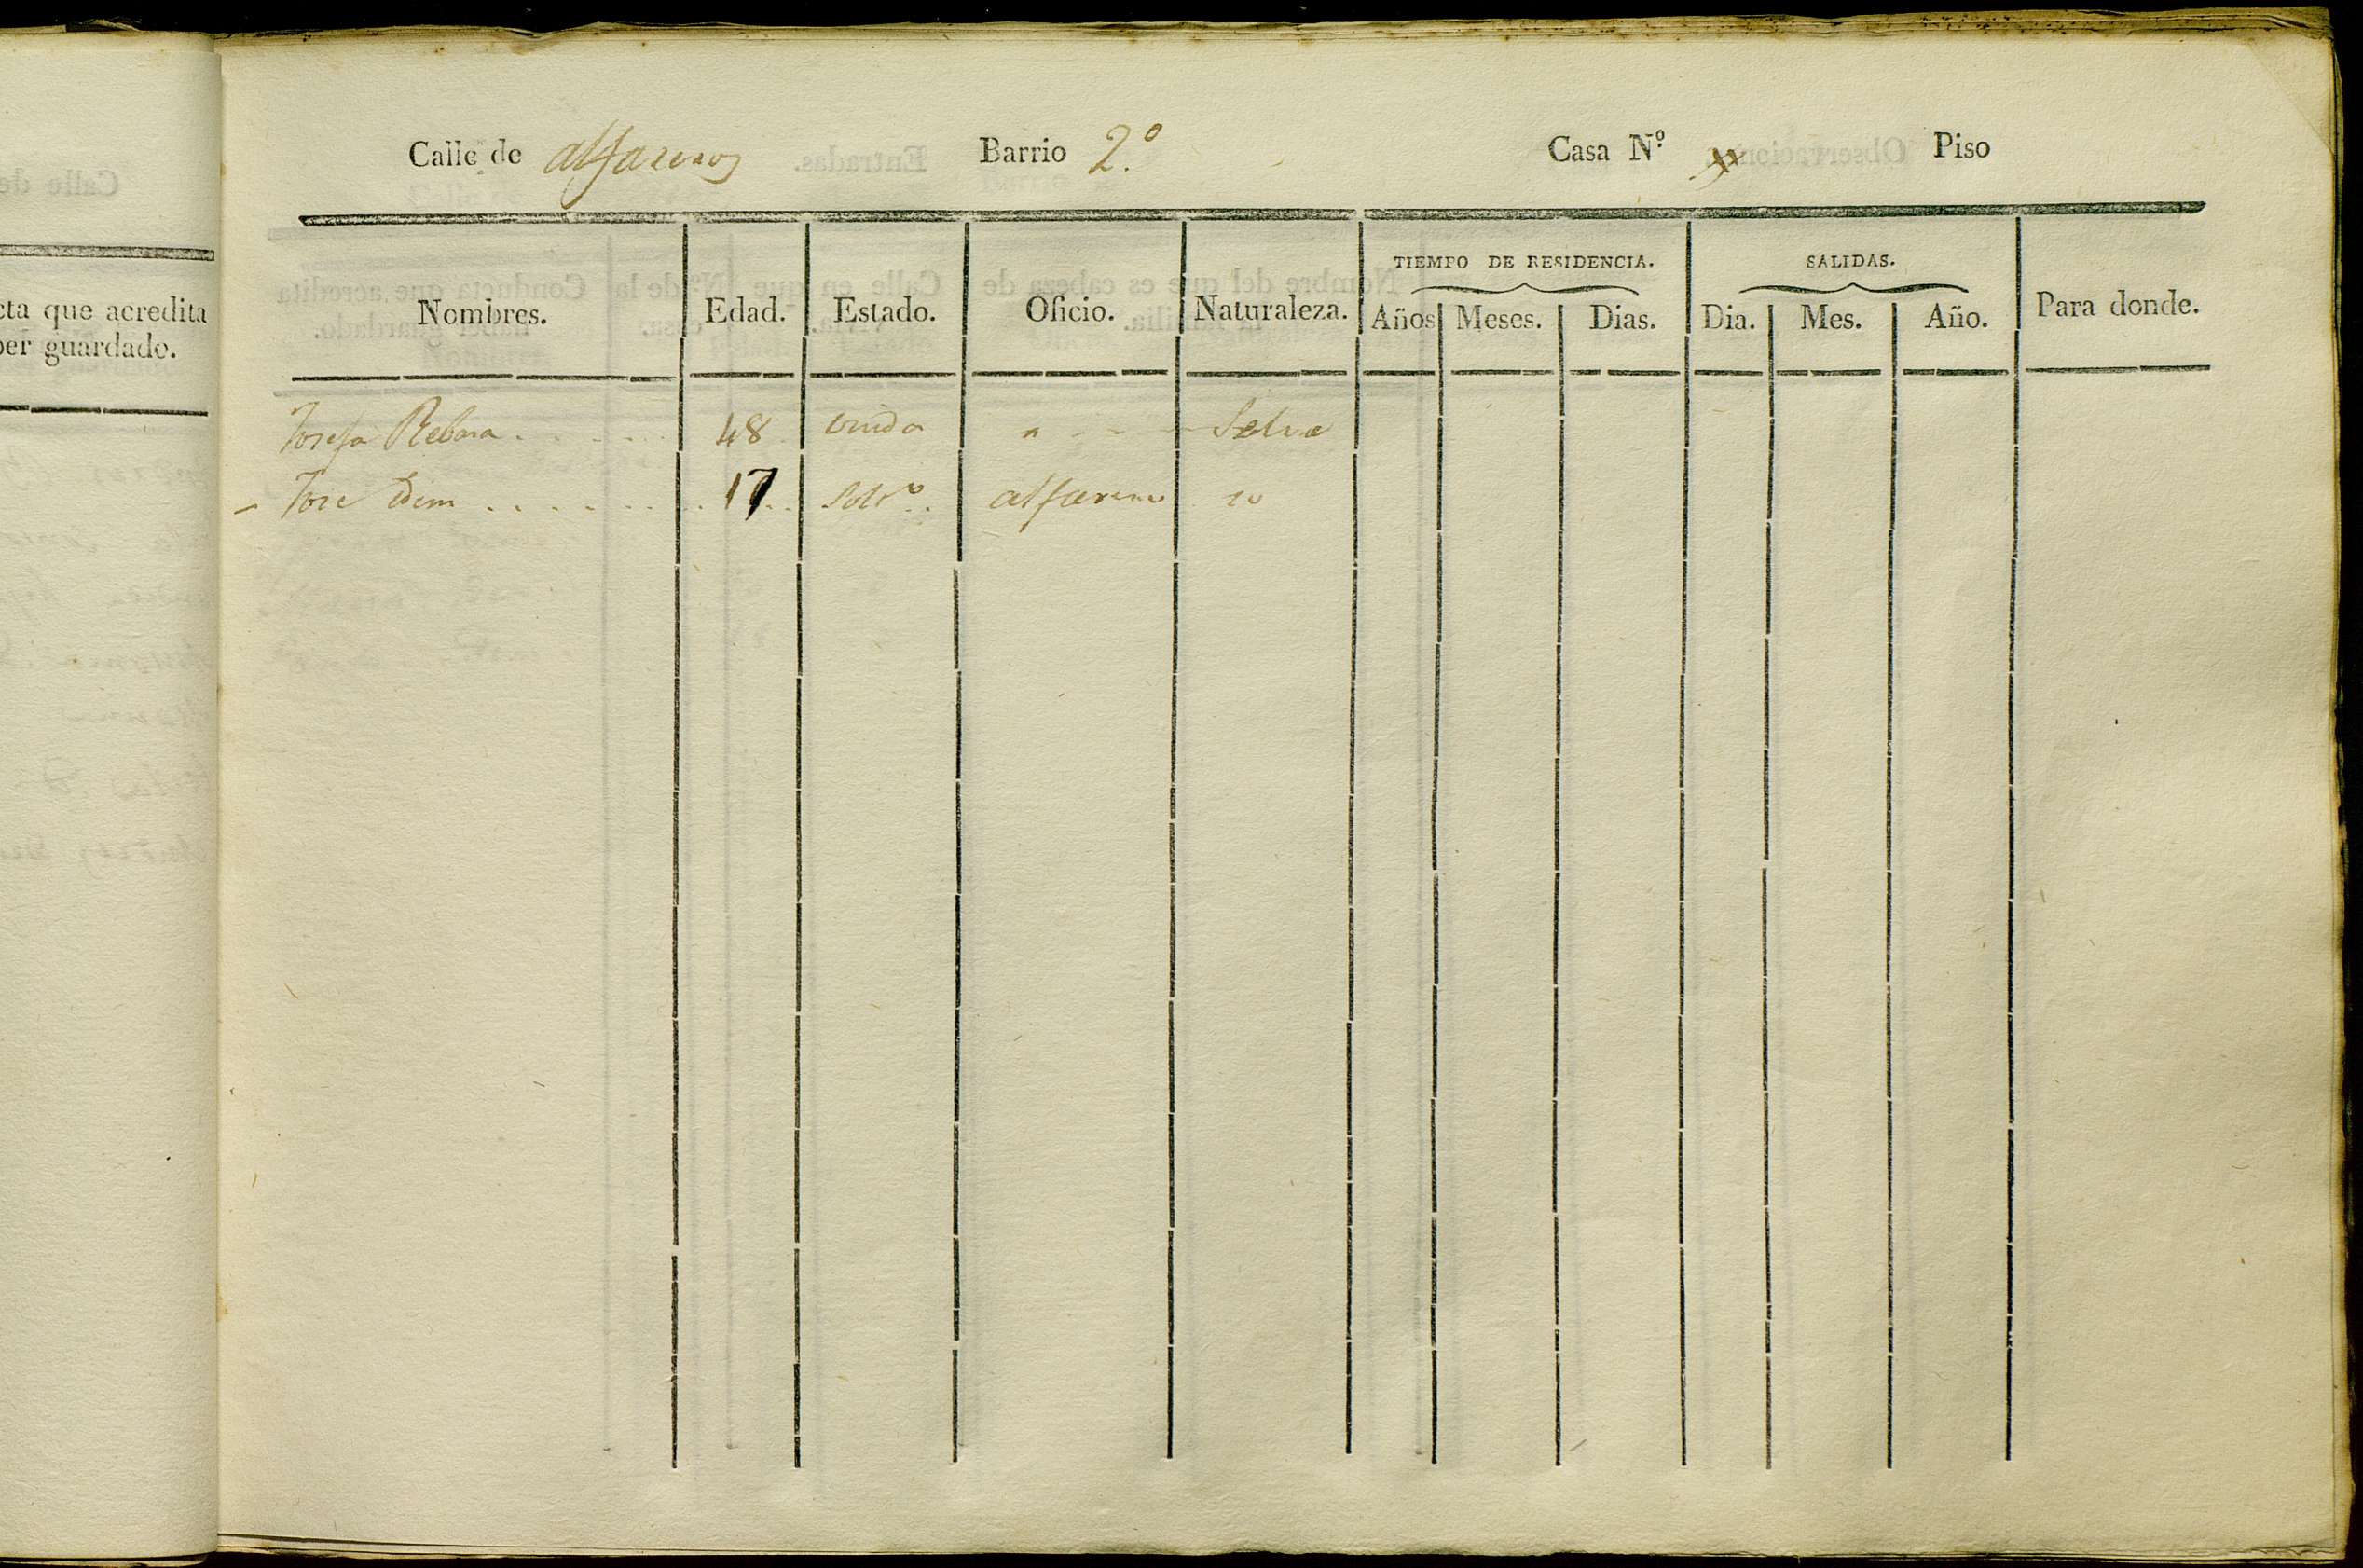 Calle de alfareros Barrio 2.º Casa N.º Piso
Nombres. Edad. Estado. Oficio. Naturaleza. TIEMPO DE RESIDENCIA. Años Meses. Dias. SALIDAS. Dia. Mes. Año. Para donde.
Josefa 48 viuda " Selva
Jose Idem 17 Solt.º alfarero id
cta que acredita
ber guardado.